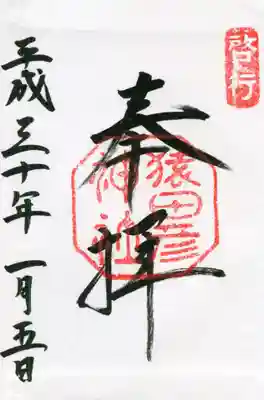 啓行
奉拝
猿田彦
神社
平成三十年 一月五日